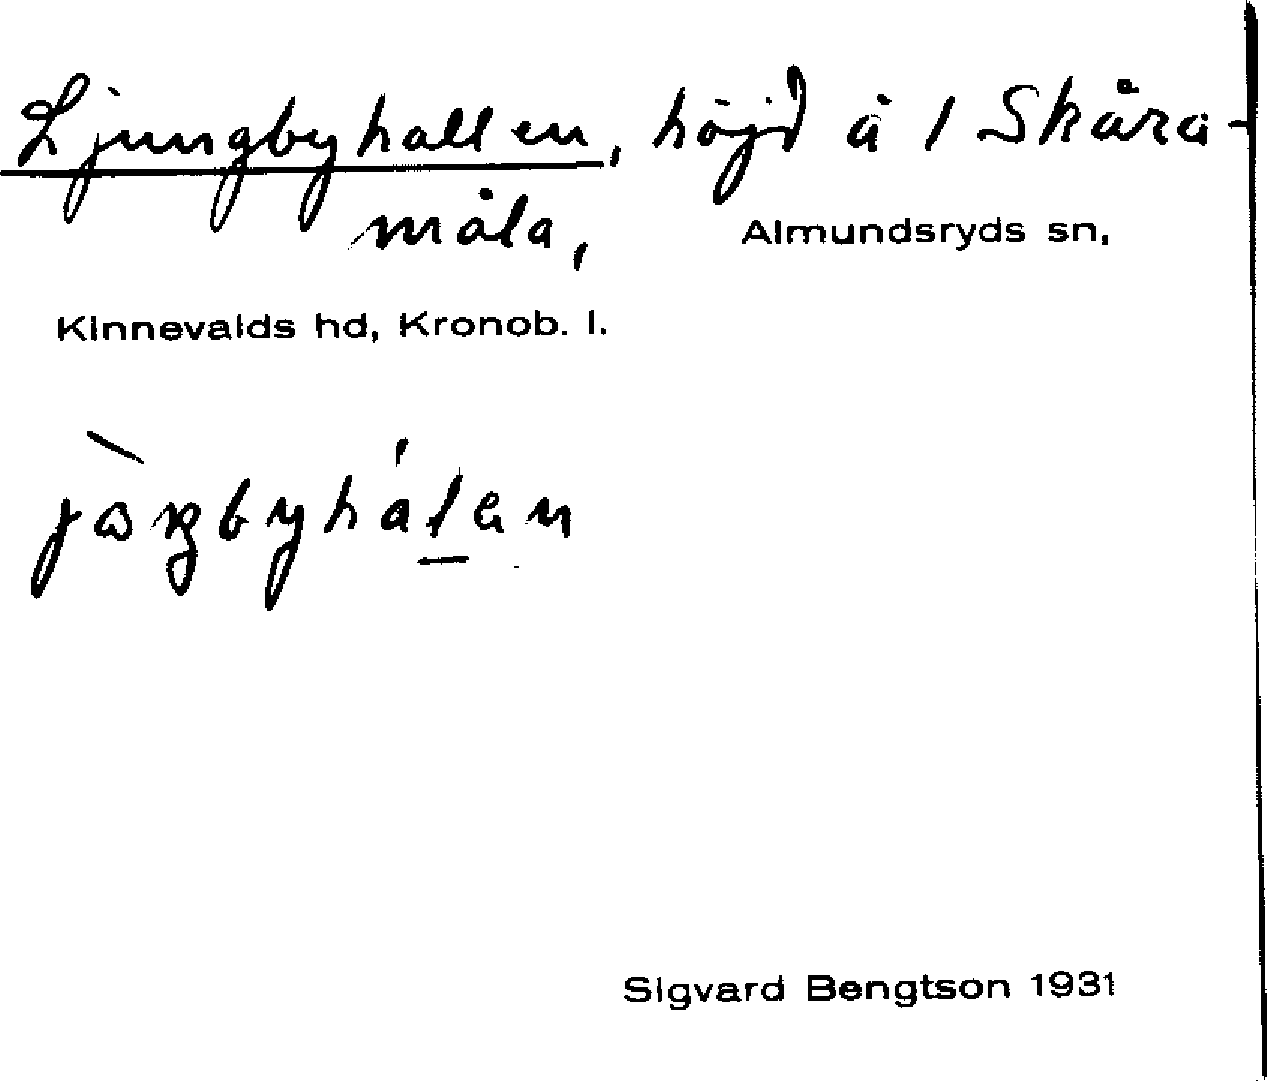 Ljungbyhallen, höjd å 1 Skåra-
måla, Almundsryds sn,
Kinnevalds hd, Kronob. l.
Sigvard Bengtson 1931